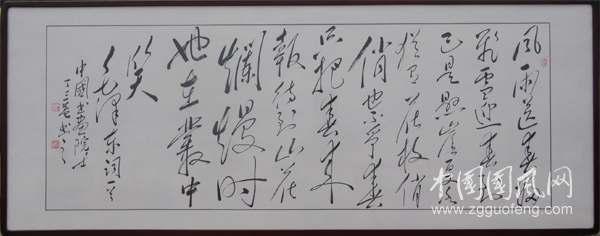 风雨送春归
飛雪迎春到
已是悬崖百丈冰
犹有花枝俏
俏也不争春
只把春来
報待到山花
爛熳时
她在叢中
笑
毛泽东词
中國书画院士
中国国风网
www.zgguofeng.com